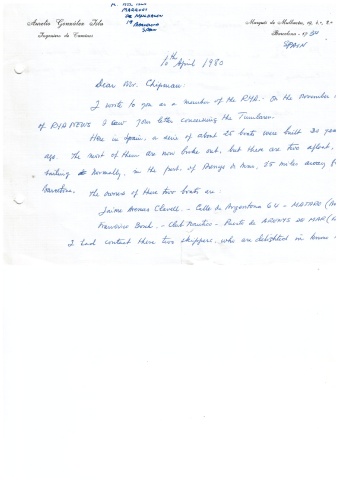 Aurelio González Isla
Ingeniero de Caminos
Marqués de Mulhacén,
Barcelona - 17
SPAIN
SPAIN
10th April 1980
Dear Mr. Chipman:
I wrote to you as a member of the RYA. On the november
of RYA NEWS I saw your letter concerning the Tumlaren.
Here in Spain, a serie of about 25 boats were built 20 year
ago. The most of them are now broke out, but there are two afloat,
sailing normally, in the port of Arenys de Mar, 25 miles away f
Barcelona.
The owners of these two boats are:
Jaime Clavell - Calle de Argentona 64 - MATARO
Francisco - Club Nautico - Puerto de ARENYS DE MAR
I had contact these two skippers, who are delighted in